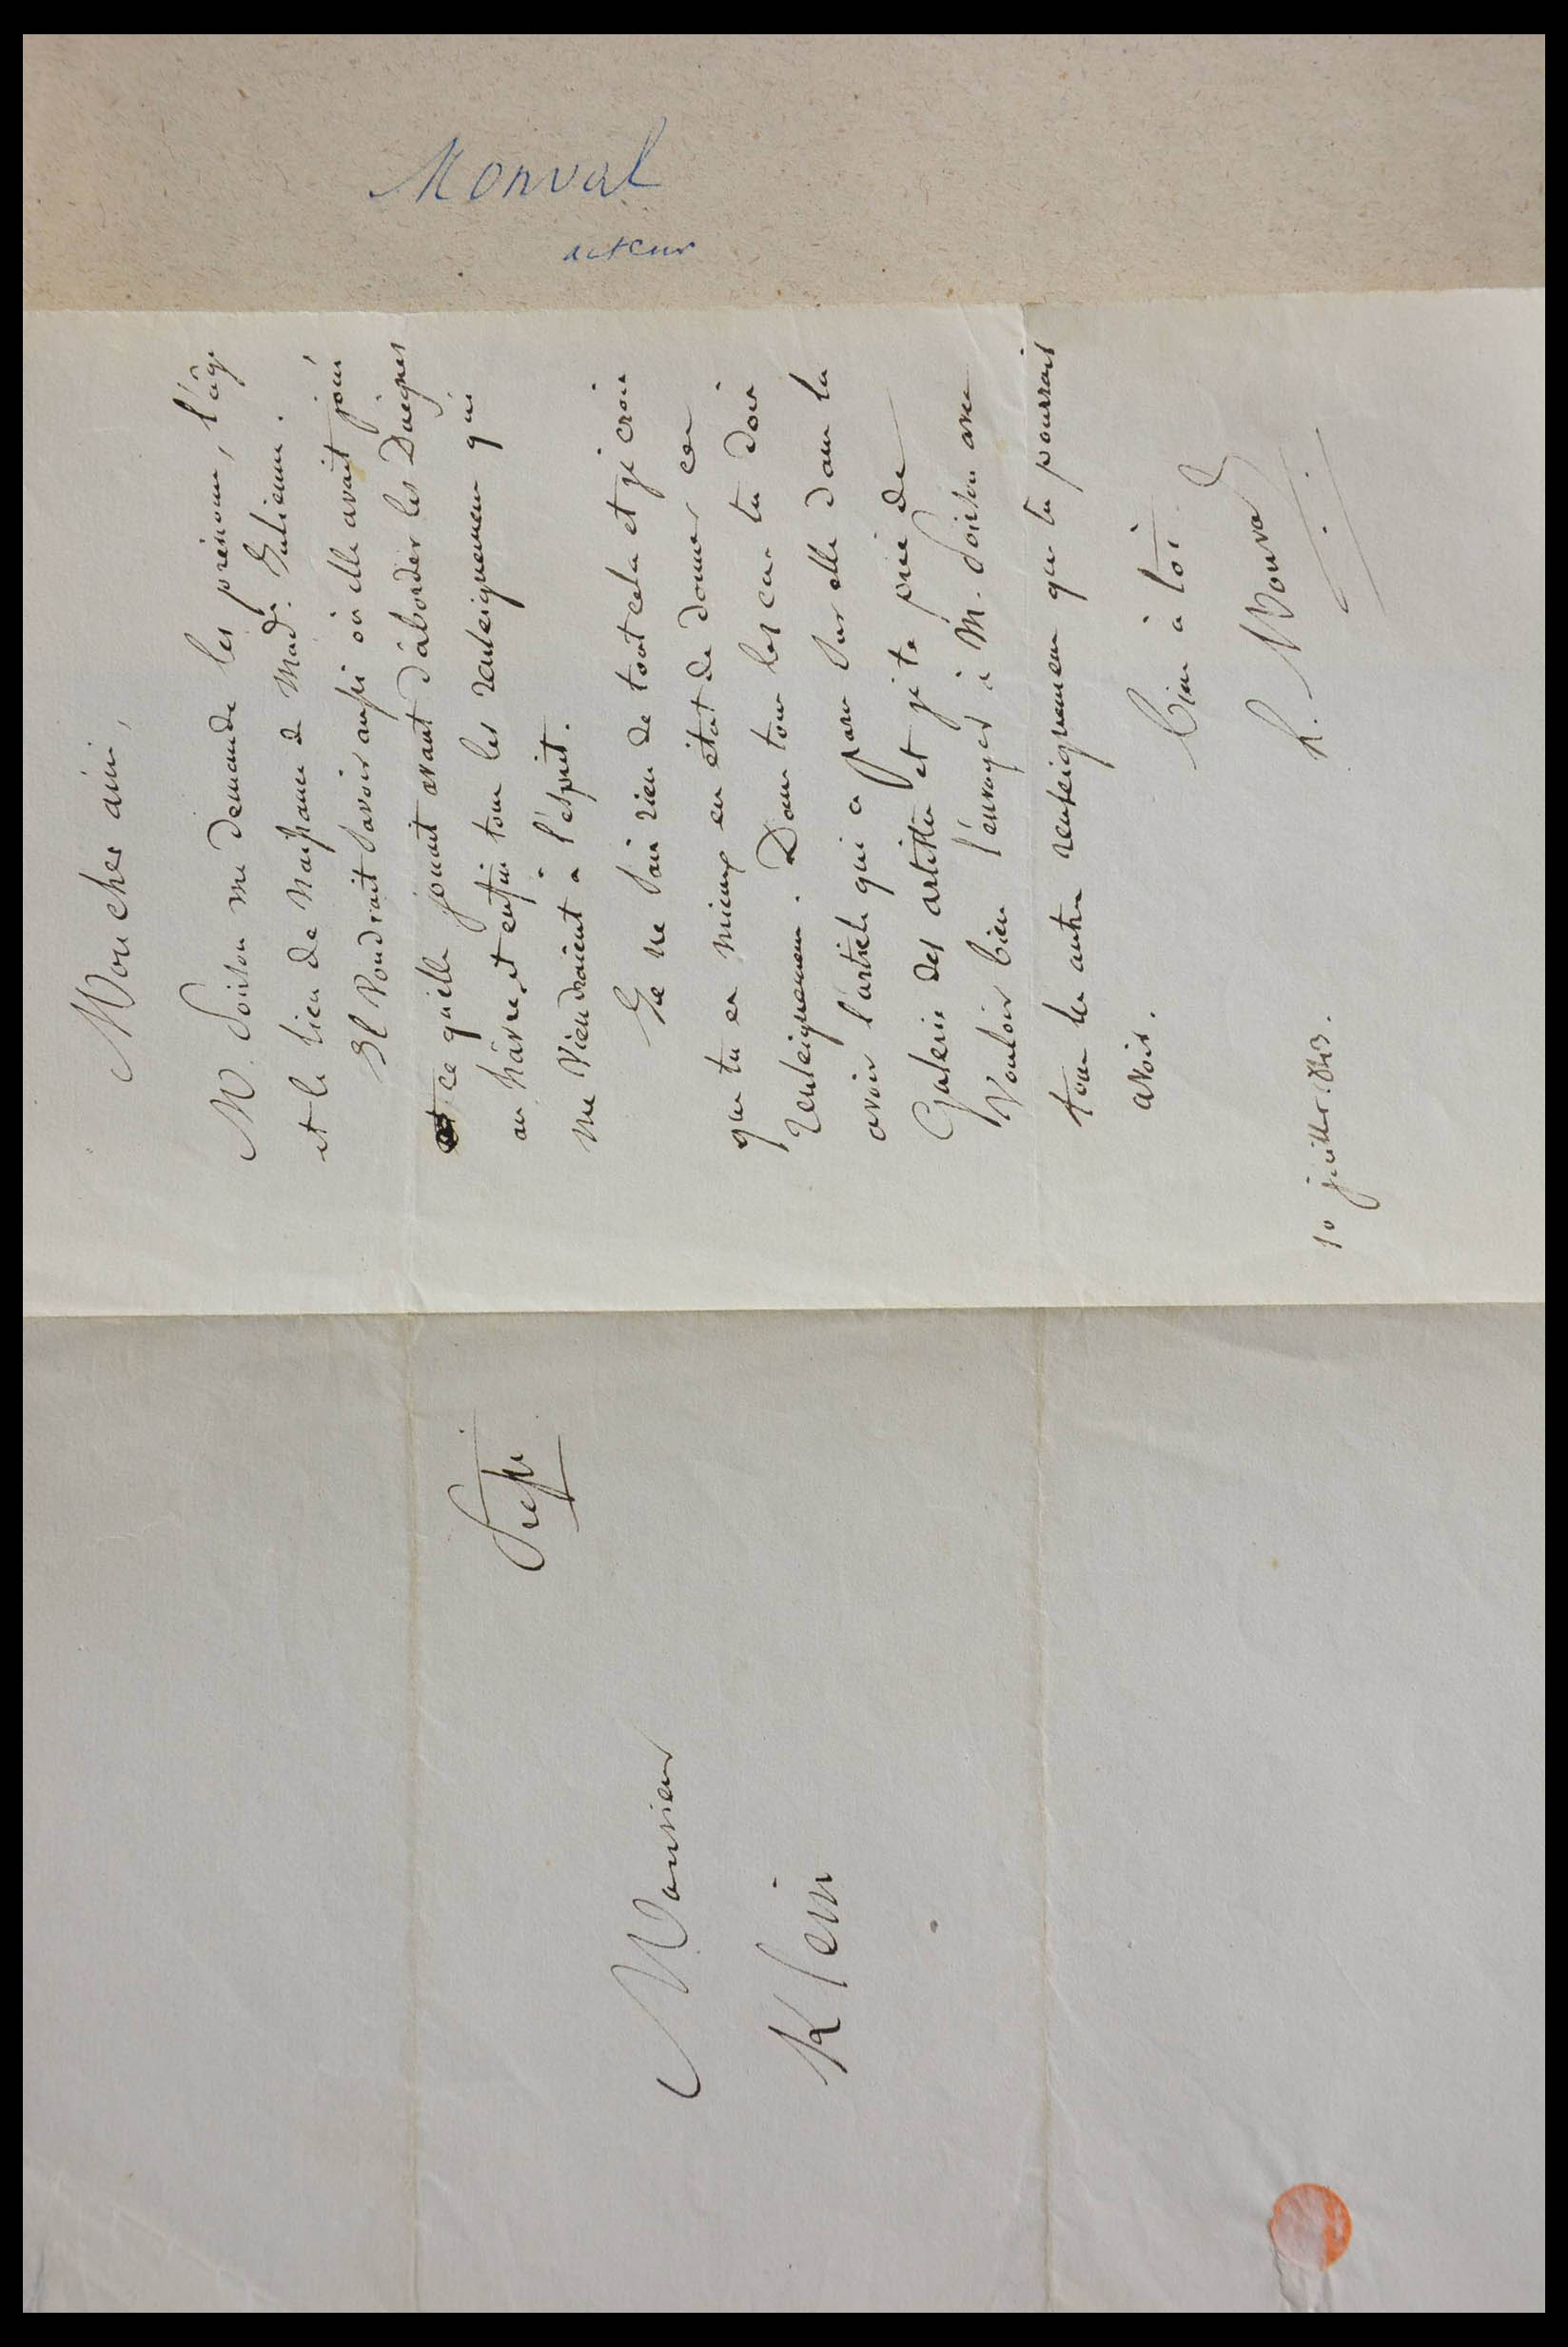 Monval
acteur
Mon cher ami,
M. Poirson me demande les prénoms, l'âge
et le lieu de naissance de Made. Julienne.
Il voudrait savoir aussi où elle avait joué
et ce qu'elle jouait avant d'aborder les Duègnes
au hâvre et enfin tous les renseignemens qui
me viendraient à l'esprit.
Je ne sais rien de tout cela et je crois
que tu es mieux en état de donner ces
renseignemens. Dans tous les cas tu dois
avoir l'article qui a paru sur elle dans la
Galerie des artistes et je te prie de
vouloir bien l'envoyer à M. Poirson avec
tous les autres renseignemens que tu pourrais
avoir.
bien à toi
Monval
10 juillet
Pressé
Monsieur
Klein